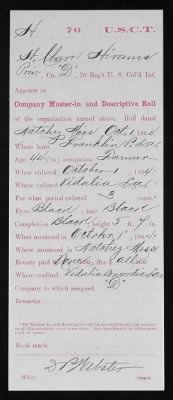 H 70 U.S.C.T.
St. Clair Hiram
Priv., Co. D, 70 Reg't U. S. Col'd Inf.
Appears on
Company Muster-in and Descriptive Roll
of the organization named above. Roll dated
Natchez Miss Oct. 1, 1864.
Where born Franklin
Age 44 y'rs; occupation Farmer
When enlisted October 1, 1864.
Where enlisted Vidalia La
For what period enlisted 3 years.
Eyes Black; hair Black
Complexion Black; height 5 ft. 7 in.
When mustered in October 1, 1864.
Where mustered in Natchez Miss
Bounty paid $
Where credited Vidalia
Company to which assigned "D"
Remarks:
Book mark:
D P Webster
Copyist.